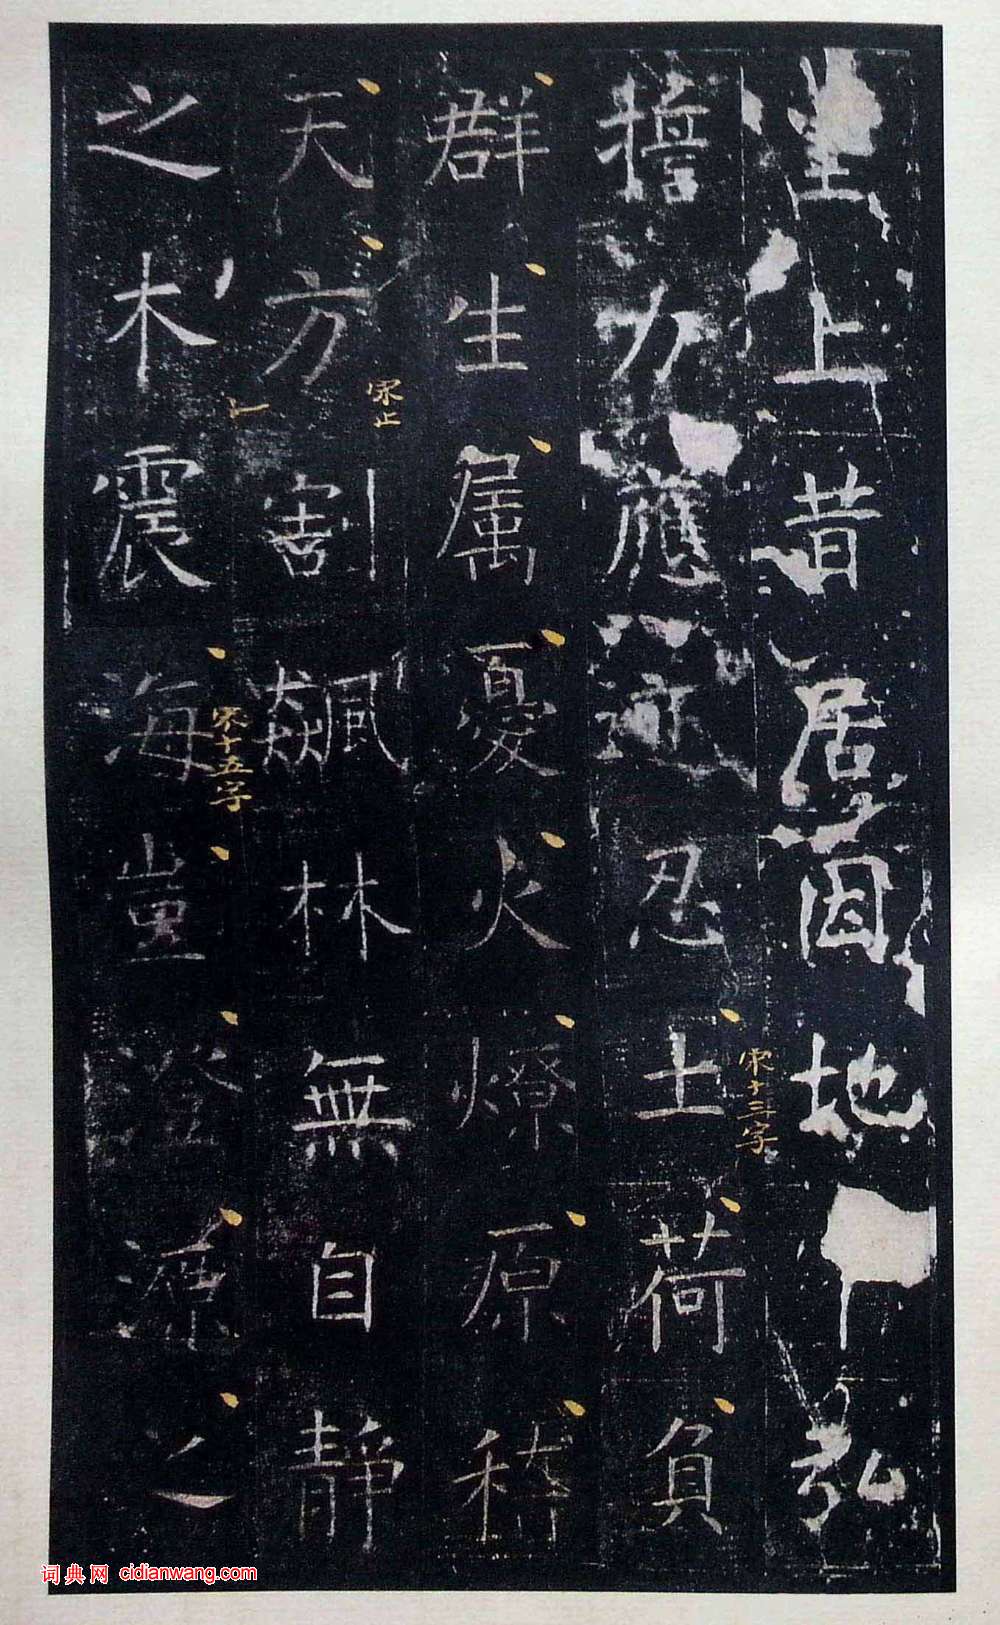 皇上昔居因地
弘
擔力應迹忍土荷負
群生属憂火燎原
稽
天方割飆林無自靜
之木震海豈澄源之
宋十三字
宋止
宋十五字
词典网 cidianwang.com